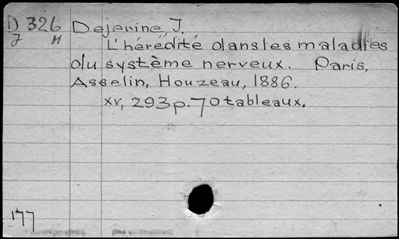 D 326 Dejerine, J.
J H L'hérédité dans les maladies
du système nerveux. Paris,
Asselin, Houzeau, 1886.
xv, 293 p. 70 tableaux.
177